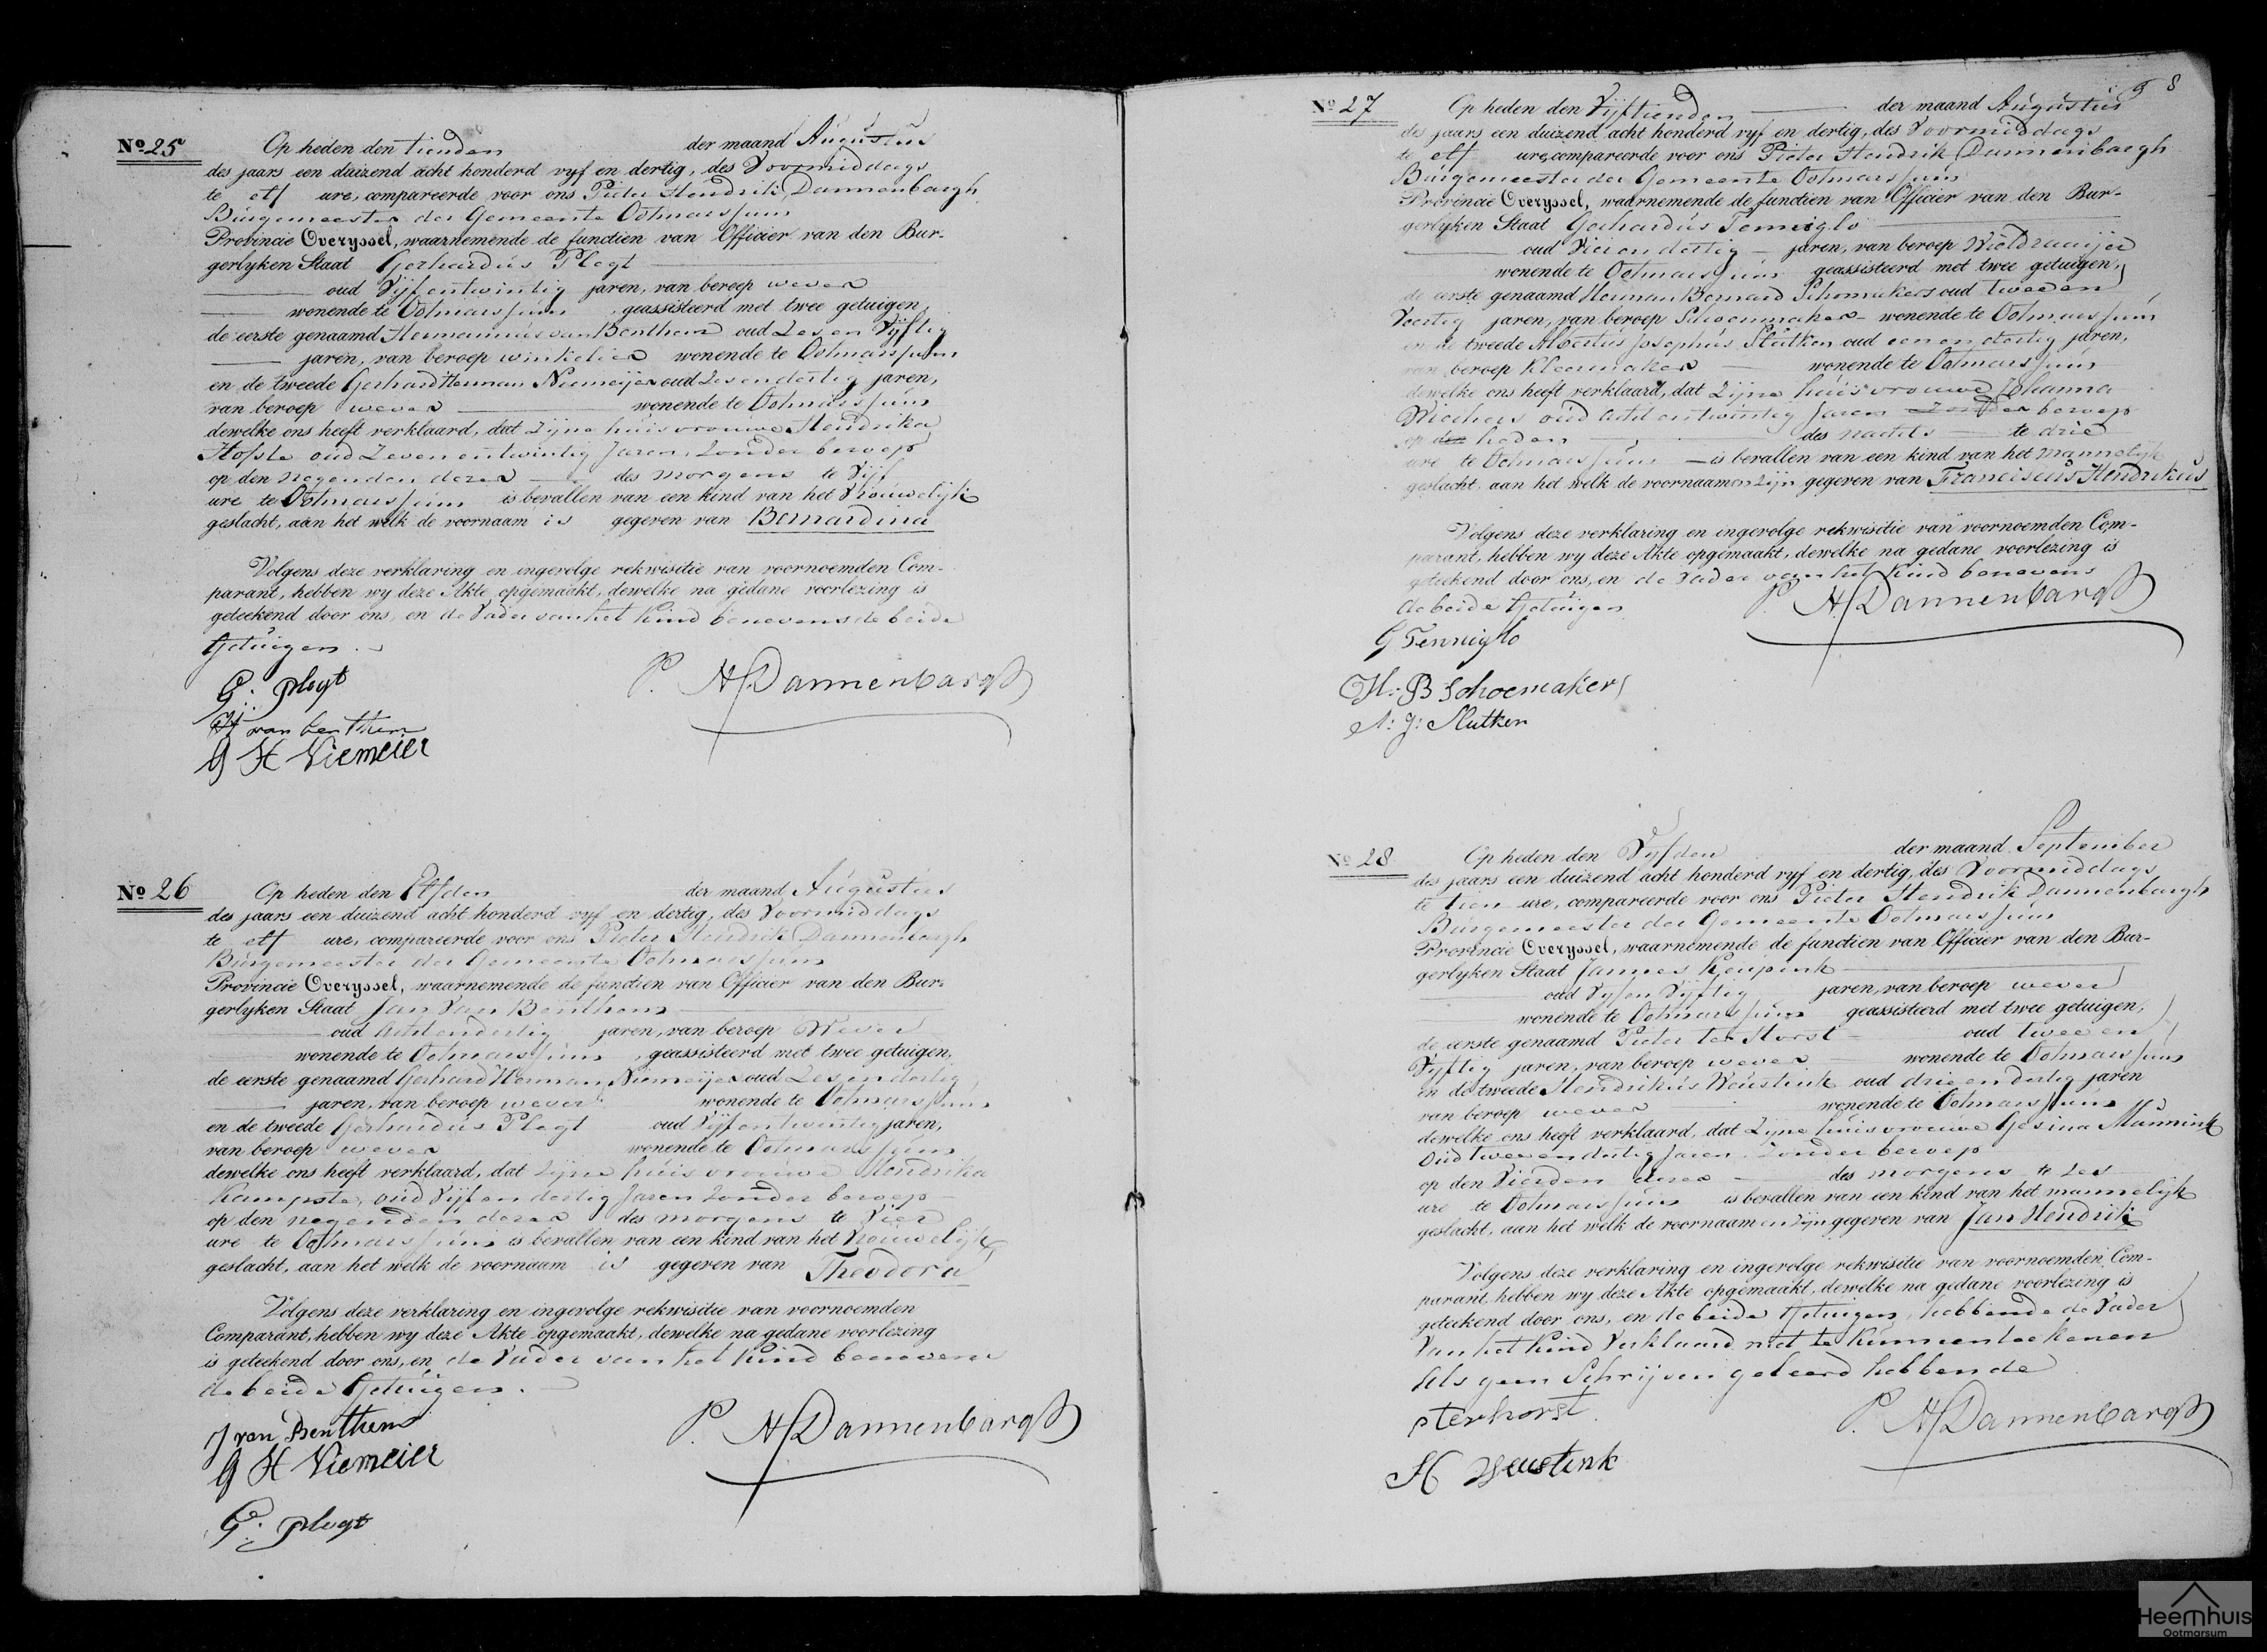 No 25
Op heden den tienden der maand Augustus
des jaars een duizend acht honderd vyf en dertig, des Voormiddags
te elf ure, compareerde voor ons Pieter Hendrik Dannenbargh
Burgemeester der Gemeente Ootmarssum
Provincie Overyssel, waarnemende de functien van Officier van den Bur-
gerlyken Staat Gerhardus Plegt
oud Vijfentwintig jaren, van beroep wever
wonende te Ootmarssum, geassisteerd met twee getuigen,
de eerste genaamd Hermannus van Benthem oud Zesen Vijftig
jaren, van beroep winkelier wonende te Ootmarssum
en de tweede Gerhard Herman Niemeijer oud Zesendertig jaren,
van beroep wever wonende te Ootmarssum
dewelke ons heeft verklaard, dat Zijne huisvrouwe Hendrika
Hofste oud Zevenentwintig Jaren, Zonder beroep
op den negenden dezer des morgens te Vijf
ure te Ootmarssum is bevallen van een kind van het Vrouwelijk
geslacht, aan het welk de voornaam is gegeven van Bernardina
Volgens deze verklaring en ingevolge rekwisitie van voornoemden Com-
parant, hebben wy deze Akte opgemaakt, dewelke na gedane voorlezing is
geteekend door ons, en de Vader van het Kind benevens de beide
Getuigen.
G: plegt
H van benthem
G H Niemeier
P. H Dannenbargh
No 26
Op heden den Elfden der maand Augustus
des jaars een duizend acht honderd vyf en dertig, des Voormiddags
te elf ure, compareerde voor ons Pieter Hendrik Dannenbargh
Burgemeester der Gemeente Ootmarssum
Provincie Overyssel, waarnemende de functien van Officier van den Bur-
gerlyken Staat Jan Van Benthem
oud Achtendertig jaren, van beroep Wever
wonende te Ootmarssum, geassisteerd met twee getuigen,
de eerste genaamd Gerhard Herman Niemeijer oud Zesendertig
jaren, van beroep wever wonende te Ootmarssum
en de tweede Gerhardus Plegt oud Vijfentwintig jaren,
van beroep wever wonende te Ootmarssum
dewelke ons heeft verklaard, dat Zijne huisvrouwe Hendrika
Kampste, oud Vijfendertig Jaren Zonder beroep
op den negenden dezer des morgens te Vier
ure te Ootmarssum is bevallen van een kind van het Vrouwelijk
geslacht, aan het welk de voornaam is gegeven van Theodora
Volgens deze verklaring en ingevolge rekwisitie van voornoemden
Comparant, hebben wy deze Akte opgemaakt, dewelke na gedane voorlezing
is geteekend door ons, en de Vader van het Kind benevens
de beide Getuigen.
J van Benthem
G H Niemeier
G: plegt
P. H Dannenbargh
8
No 27
Op heden den Vijftienden der maand Augustus
des jaars een duizend acht honderd vyf en dertig, des Voormiddags
te elf ure, compareerde voor ons Pieter Hendrik Dannenbargh
Burgemeester der Gemeente Ootmarssum
Provincie Overyssel, waarnemende de functien van Officier van den Bur-
gerlyken Staat Gerhardus Tenniglo
oud Vierendertig jaren, van beroep Wieldraaijer
wonende te Ootmarssum geassisteerd met twee getuigen,
de eerste genaamd Herman Bernard Schomakers oud tweeen
Veertig jaren, van beroep Schoenmaker wonende te Ootmarssum
en de tweede Albertus Josephus Slutken oud eenendertig jaren,
van beroep Kleermaker wonende te Ootmarssum
dewelke ons heeft verklaard, dat Zijne huisvrouwe Johanna
Wiechers oud achtentwintig Jaren Zonder beroep
op den heden des nachts te drie
ure te Ootmarssum is bevallen van een kind van het mannelijk
geslacht, aan het welk de voornaamen zijn gegeven van Franciscus Hendrikus
Volgens deze verklaring en ingevolge rekwisitie van voornoemden Com-
parant, hebben wy deze Akte opgemaakt, dewelke na gedane voorlezing is
geteekend door ons, en de Vader van het Kind benevens
de beide Getuigen
P. H Dannenbargh
G Tenniglo
H: B Schoemakers
A: J: Slutken
No 28
Op heden den Vyfden der maand September
des jaars een duizend acht honderd vyf en dertig, des Voormiddags
te tien ure, compareerde voor ons Pieter Hendrik Dannenbargh
Burgemeester der Gemeente Ootmarssum
Provincie Overyssel, waarnemende de functien van Officier van den Bur-
gerlyken Staat Jannes Keupink
oud Vyfen Vijftig jaren, van beroep wever
wonende te Ootmarssum geassisteerd met twee getuigen,
de eerste genaamd Pieter ter Horst oud tweeen
Vyftig jaren, van beroep wever wonende te Ootmarssum
en de tweede Hendrikus Weustink oud drieendertig jaren
van beroep wever wonende te Ootmarssum
dewelke ons heeft verklaard, dat Zijne huisvrouwe Gesina Mannink
Oud tweeendertig Jaren Zonder beroep
op den Vierden dezer des morgens te Zes
ure te Ootmarssum is bevallen van een kind van het mannelijk
geslacht, aan het welk de voornaamen zijn gegeven van Jan Hendrik
Volgens deze verklaring en ingevolge rekwisitie van voornoemden Com-
parant, hebben wy deze Akte opgemaakt, dewelke na gedane voorlezing is
geteekend door ons, en de beide Getuigen, hebbende de Vader
Van het Kind Verklaard niet te Kunnen teekenen
Als geen Schrijven geleerd hebbende
P terhorst
H Weustink
P. H Dannenbargh
Heemhuis
Ootmarsum